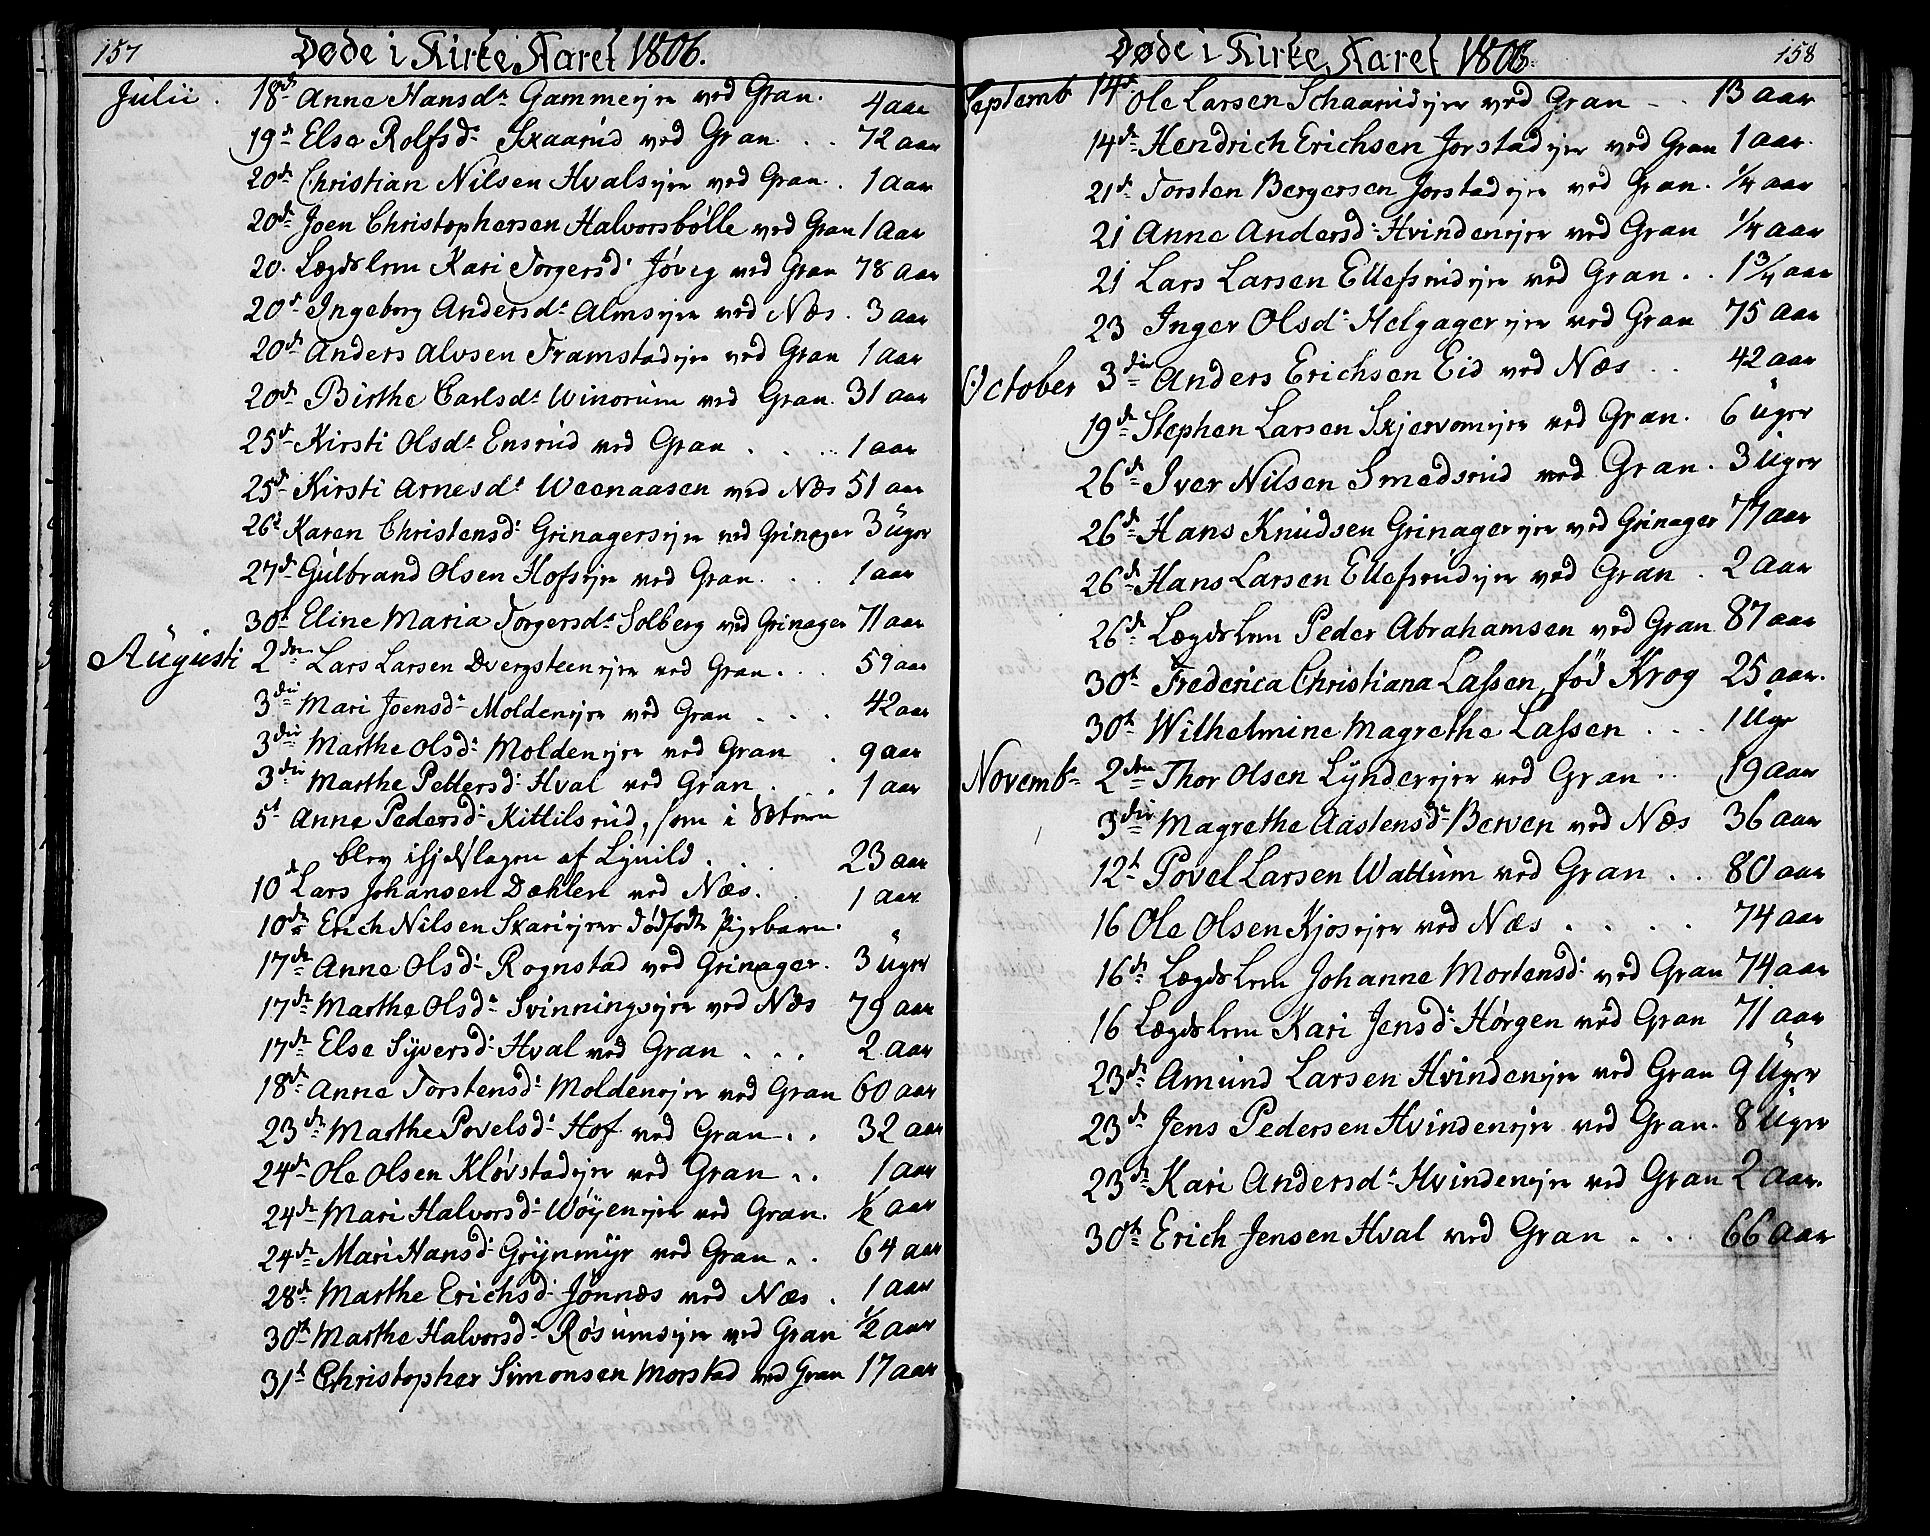 157 Døde i Kirke Aaret 1806.
Julii. 18de Anne Hansd: Gammeejer ved Gran. 4 aar
19de Else Rolfsd: Skaarud ved Gran . . 72 aar
20de Christian Nilsen Hvalsejer ved Gran . 1 aar
20de Joen Christophersen Halvorsbølle ved Gran 1 aar
20. Lægdslem Kari Torgersd: Jøveg ved Gran 78 aar
20de Ingeborg Andersd: Almsejer ved Næs . 3 aar
20de Anders Alvsen Framstadejer ved Gran 1 aar
20de Birthe Carlsd: Winorum ved Gran. 31 aar
25de Kirsti Olsd: Ensrud ved Gran . . . . 1 aar
25de Kirsti Arnesd: Weenaasen ved Næs 51 aar
26de Karen Christensd: Grinagersejer ved Grinager 3 Uger
27de Gulbrand Olsen Hofsejer ved Gran. . . 1 aar
30t Eline Maria Torgersd: Solberg ved Grinager 71 aar
Augusti 2den Lars Larsen Dvergsteenejer ved Gran. . . 59 aar
3die Mari Joensd: Moldenejer ved Gran . . . 42 aar
3die Marthe Olsd: Moldenejer ved Gran . 9 aar
3die Marthe Pettersd: Hval ved Gran . . . 1 aar
5t Anne Pedersd: Kittilsrud, som i Sæteren
blev ihjelslagen af Lynild . . . 23 aar
10de Lars Johansen Dæhlen ved Næs. . 1 aar
10de Erich Nilsen Skariejers dødfødte Pigebarn.
17de Anne Olsd: Rognstad ved Grinager. 3 Uger
17de Marthe Olsd: Svinningsejer ved Næs 79 aar
17de Else Syversd: Hval ved Gran . . . 2 aar
18de Anne Torstensd: Moldenejer ved Gran 60 aar
23de Marthe Povelsd: Hof ved Gran . . 32 aar
24de Ole Olsen Kløvstadejer ved Gran . . 1 aar
24de Mari Halvorsd: Wøyenejer ved Gran. ½ aar
24de Mari Hansd: Grynmyr ved Gran . . 64 aar
28de Marthe Erichsd: Jønnæs ved Næs . 1 aar
30te Marthe Halvorsd: Røsumsejer ved Gran ½ aar
31t Christopher Simonsen Morstad ved Gran 17 aar
Døde i Kirke Aaret 1806. 158
Septemb 14de Ole Larsen Schaarudejer ved Gran . . 13 aar
14de Hendrich Erichsen Jorstadejer ved Gran 1 aar.
21de Torsten Bergersen Jorstadejer ved Gran. ¼ aar
21 Anne Andersd: Hvindenejer ved Gran ¼ aar
21 Lars Larsen Ellefsrudejer ved Gran . . 1¾ aar
23 Inger Olsd: Helgagerejer ved Gran 75 aar
October 3die Anders Erichsen Eid ved Næs . . 42 aar
19de Stephen Larsen Skjervomejer ved Gran. 6 Uger
26de Iver Nilsen Smedsrud ved Gran. 3 Uger
26de Hans Knudsen Grinagerejer ved Grinager 77 aar
26de Hans Larsen Ellefsrudejer ved Gran . 2 aar
26de Lægdslem Peder Abrahamsen ved Gran 87 aar
30t Frederica Christiana Lassen, fød Krog 25 aar.
30t Wilhelmine Magrethe Lassen . . . 1 Uge
Novemb: 2den Thor Olsen Lynderejer ved Gran . . 19 aar
3die Magrethe Aastensd: Berven ved Næs 36 aar
12t Povel Larsen Wattum ved Gran . . 80 aar
16 Ole Olsen Kjosejer ved Næs . . . . 74 aar
16de Lægdslem Johanne Mortensd: ved Gran 74 aar
16 Lægdslem Kari Jensd: Hørgen ved Gran 71 aar
23de Amund Larsen Hvindenejer ved Gran 9 Uger
23de Jens Pedersen Hvindenejer ved Gran. 8 Uger
23de Kari Andersd: Hvindenejer ved Gran 2 aar.
30te Erich Jensen Hval ved Gran . . . 66 aar